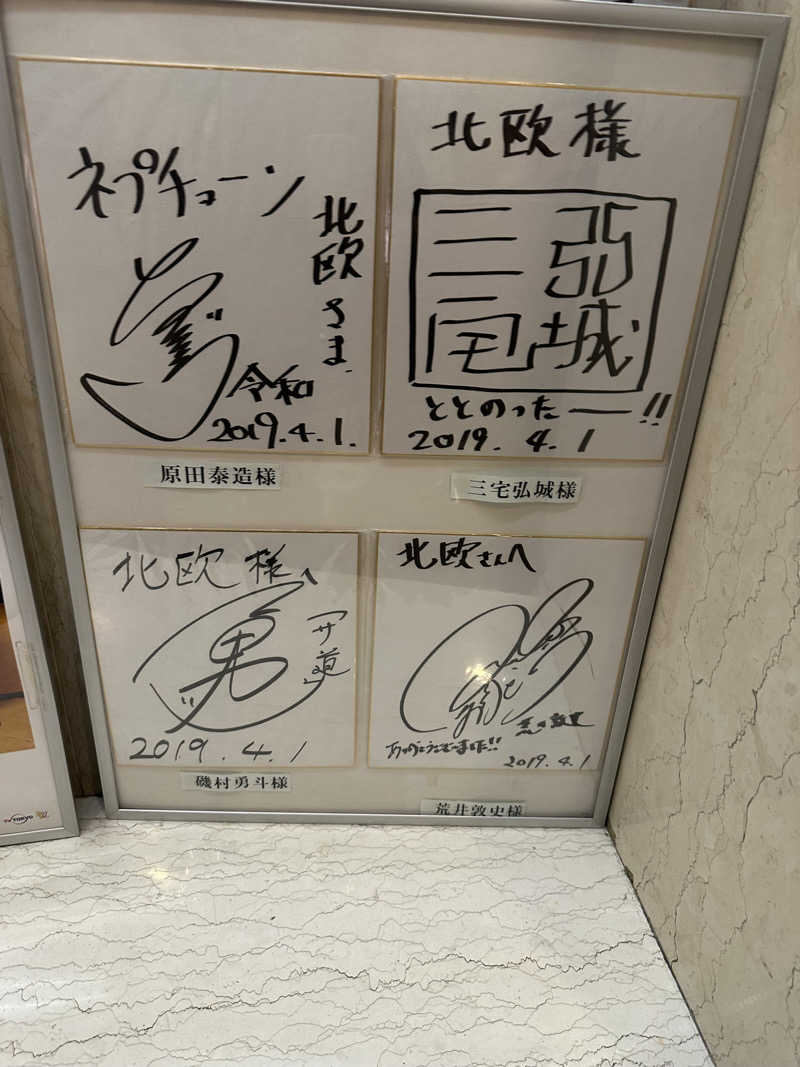 ネプチューン
北欧さま
令和
2019.4.1.
原田泰造様
北欧様
三宅弘城
ととのったー!!
2019.4.1
三宅弘城様
北欧様へ
「サ道」
2019.4.1
磯村勇斗様
北欧さんへ
ありがとうございました!!
2019.4.1
荒井敦史様
TV TOKYO